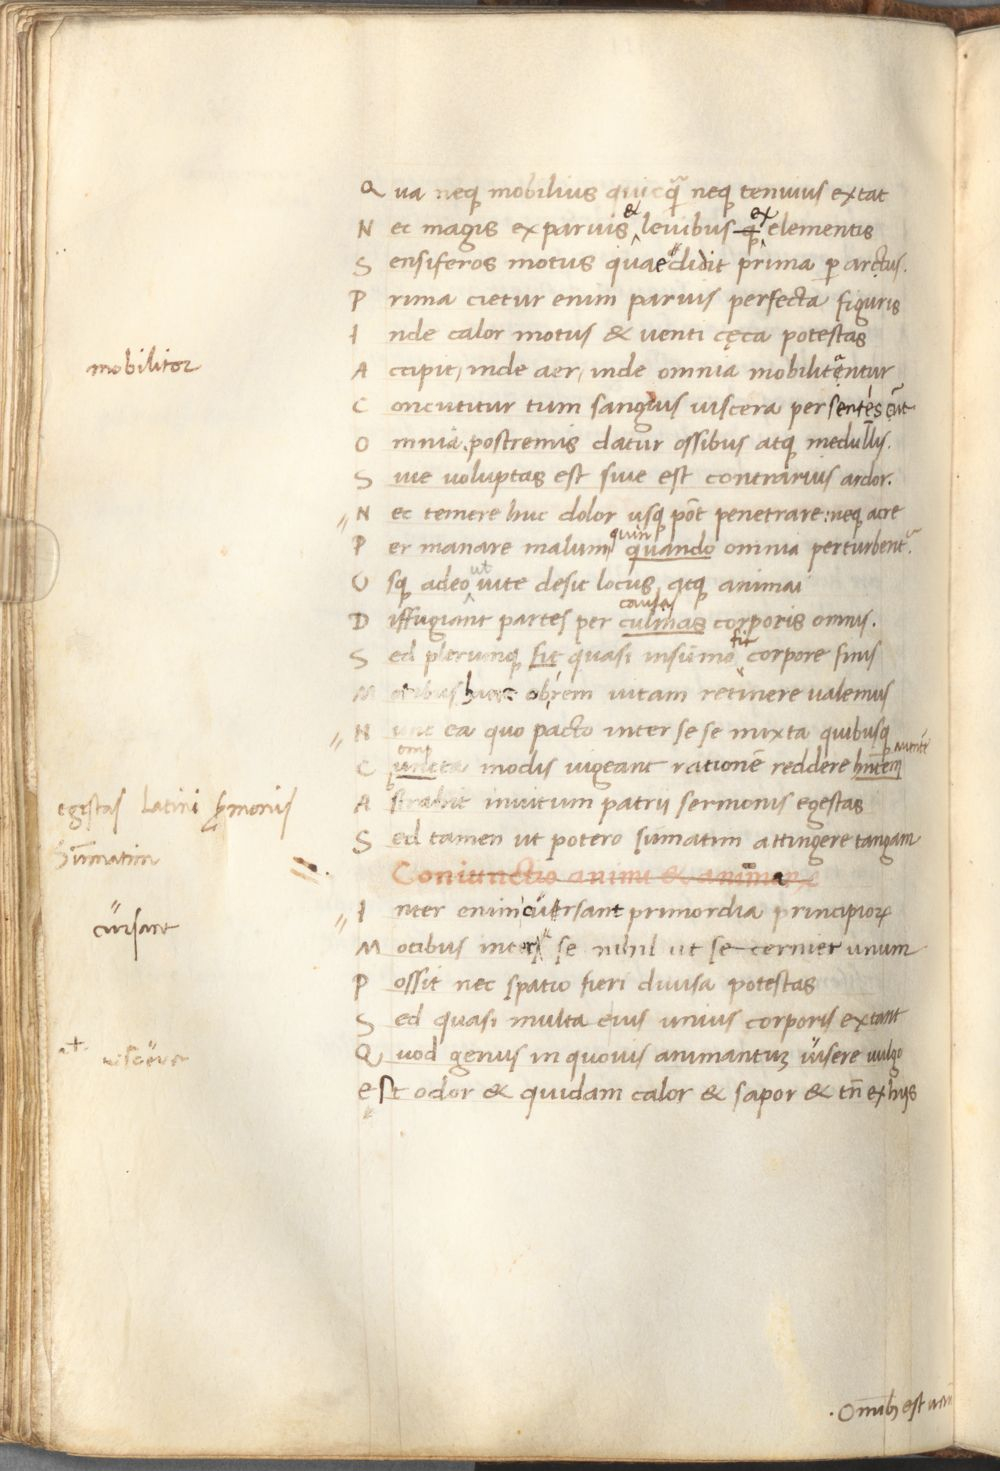 Qua neq mobilius quicq̃ neq tenuius extat
Nec magis ex paruis & leuibus ex elementis
Sensiferos motus quae didit prima p arctus.
Prima cietur enim paruis perfecta figuris
Inde calor motus & uenti cęca potestas
mobilitor
Accipit, inde aer, inde omnia mobilitantur
Concutitur tum sanguis uiscera persentiscũt
Omnia, postremis datur ossibus atq medullis.
Siue uoluptas est siue est contrarius ardor.
Nec temere huc dolor usq põt penetrare: neq acre
quin
Per manare malum quando omnia perturbent.
Usq adeo ut uite desit locus, atq animai
causas
Diffugiant partes per culmas corporis omnis.
Sed plerunq fit quasi insũmo fit corpore finis
Motibus hanc obrem uitam retinere ualemus
Nunc ea quo pacto inter se se mixta quibusq
Cuncta modis uigeant rationẽ reddere
Astrahit inuitum patrii sermonis egestas
egestas latini sermonis
Sed tamen ut potero sumatim attingere tangam
Sũmatim
Coniunctio animi &
Inter enim cursant primordia principiorꝝ
cursant
Motibus inter se nihil ut se-cernier unum
Possit nec spatio fieri diuisa potestas
Sed quasi multa eius unius corporis extant
Quod genus in quouis animantuʒ uisere uulgo
uiscere
est odor & quidam calor & sapor & tñ ex hijs
.Omibʒ est